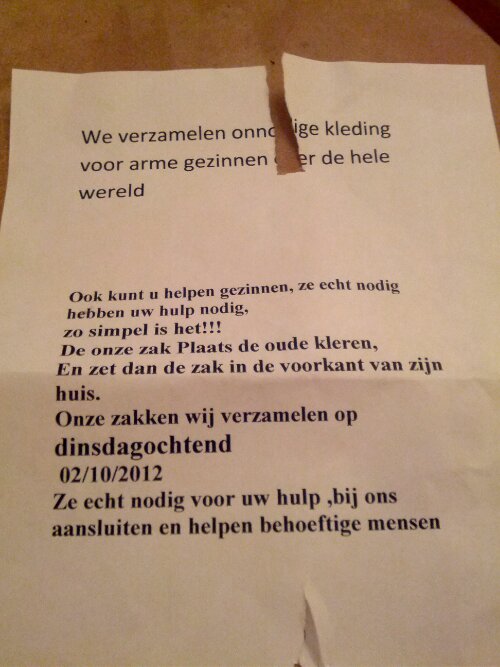 We verzamelen onnodige kleding
voor arme gezinnen over de hele
wereld
Ook kunt u helpen gezinnen, ze echt nodig
hebben uw hulp nodig,
zo simpel is het!!!
De onze zak Plaats de oude kleren,
En zet dan de zak in de voorkant van zijn
huis.
Onze zakken wij verzamelen op
dinsdagochtend
02/10/2012
Ze echt nodig voor uw hulp ,bij ons
aansluiten en helpen behoeftige mensen